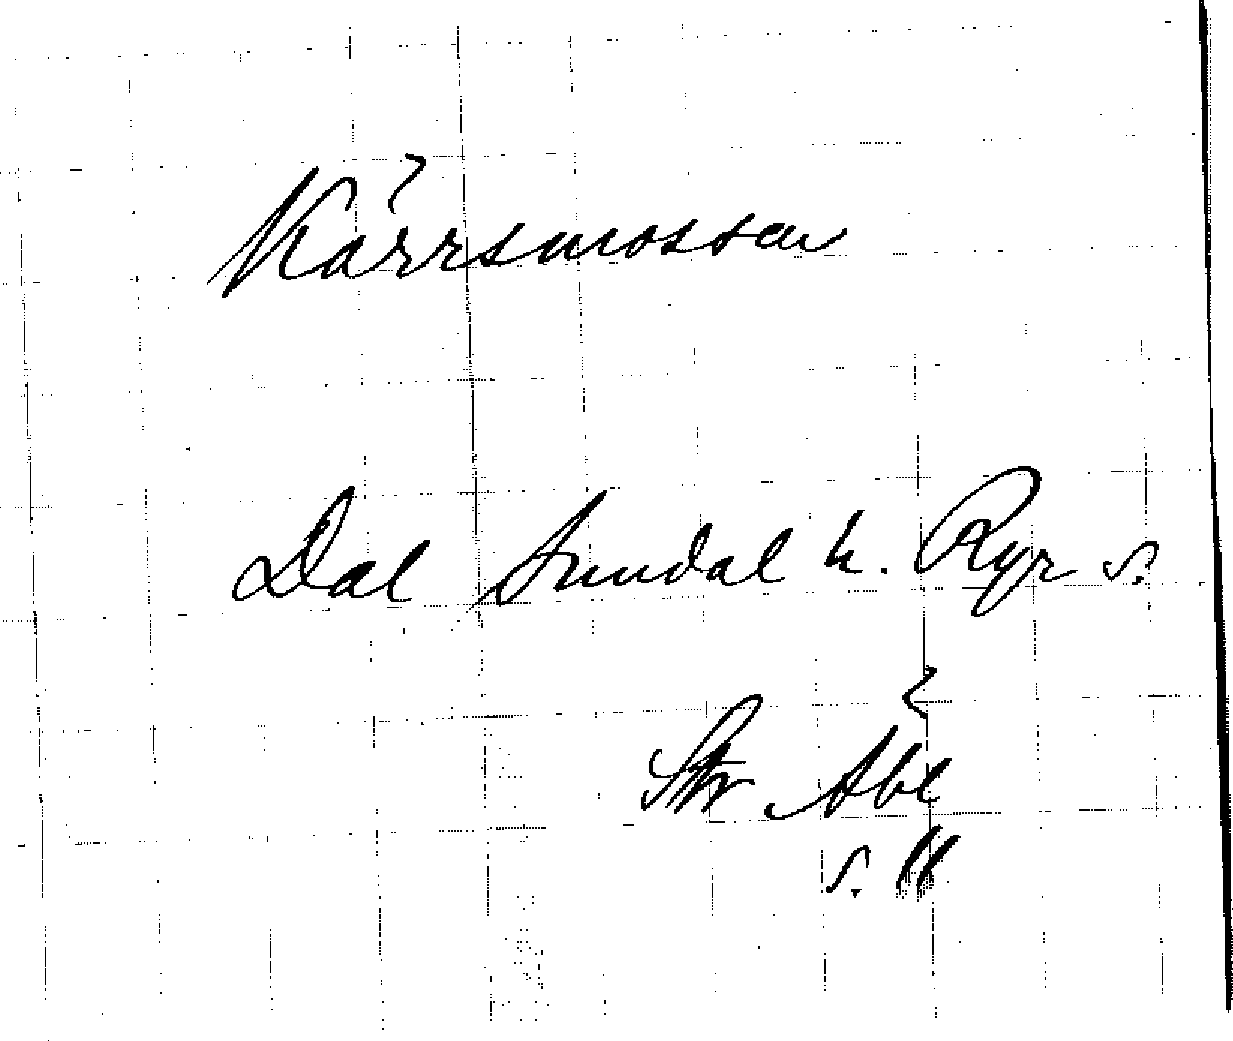 Kärrsmossen
Dal Sundal h. Ryr s.
Str Abl
s. 11